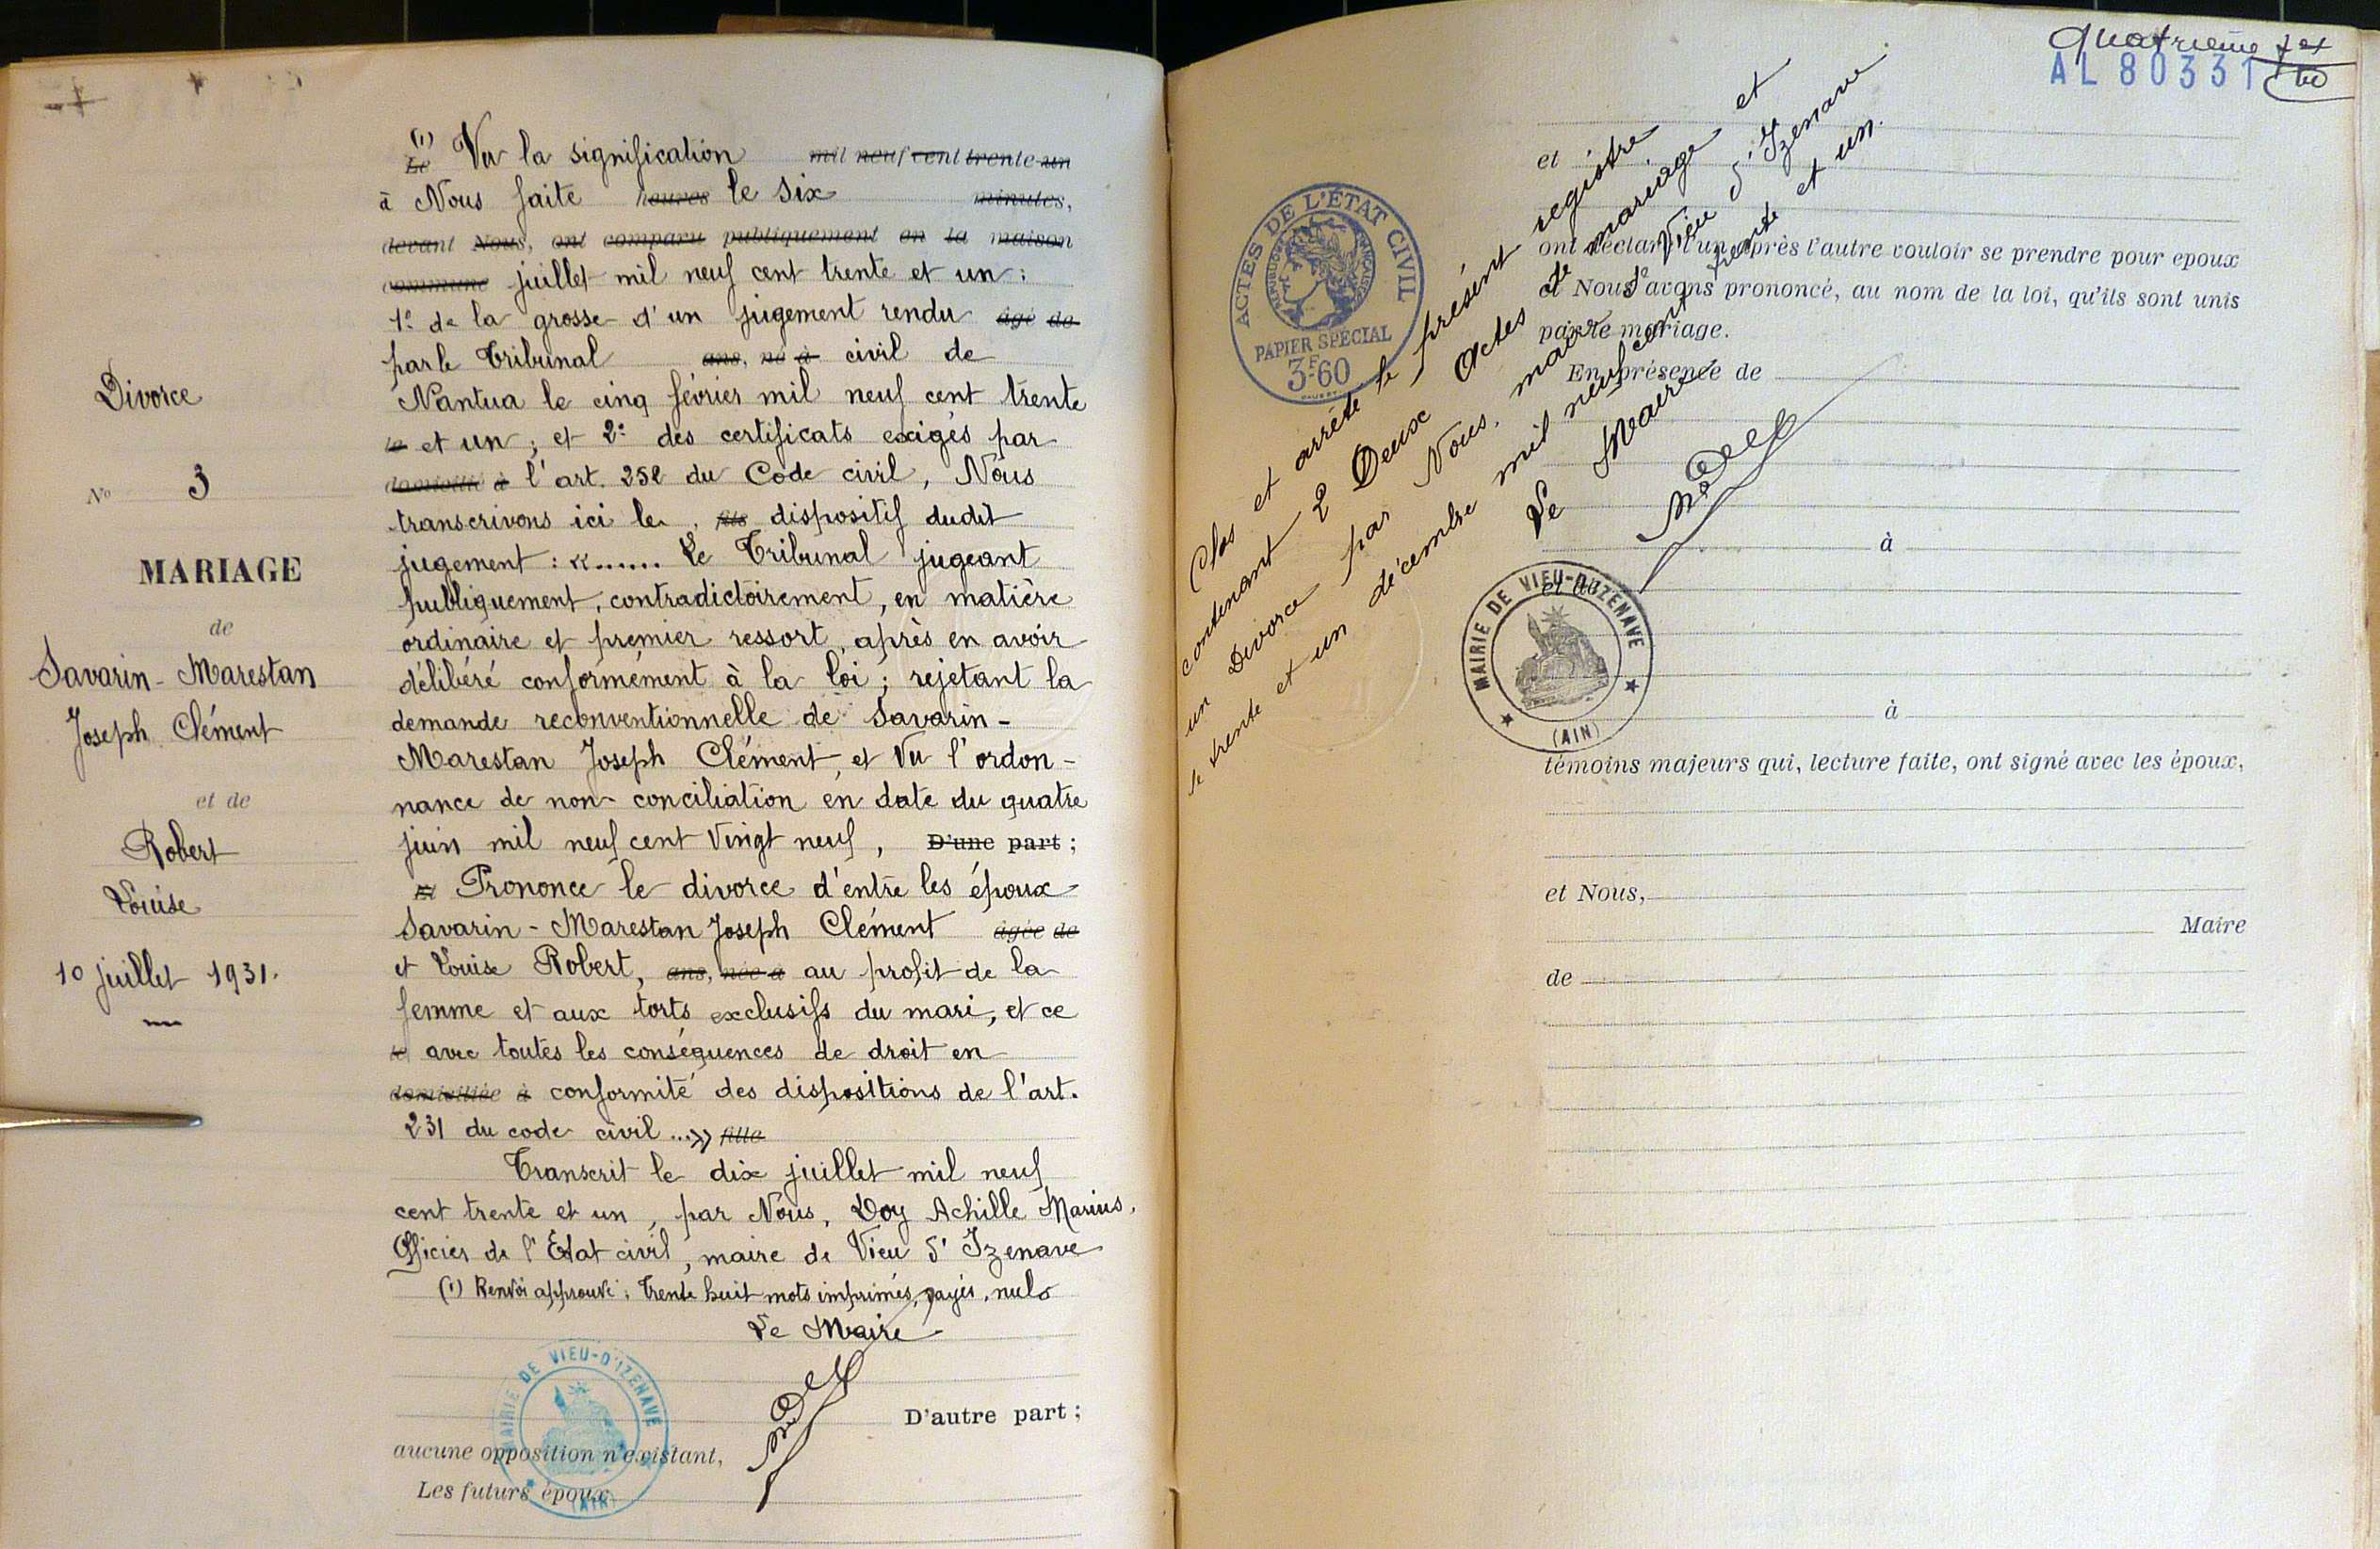 Divorce
No 3
MARIAGE
de
Savarin - Marestan
Joseph Clément
et de
Robert
Louise
10 juillet 1931.
(1) Le Vu la signification mil neuf cent trente un
à Nous faite heures le six minutes,
devant Nous, ont comparu publiquement en la maison
commune juillet mil neuf cent trente et un :
1º de la grosse d'un jugement rendu âgé de
par le Tribunal ans, né à civil de
Nantua le cinq février mil neuf cent trente
le et un ; et 2º des certificats exigés par
domicilié à l'art. 252 du Code civil, Nous
transcrivons ici le, fils dispositif dudit
jugement : «...... Le Tribunal jugeant
publiquement, contradictoirement, en matière
ordinaire et premier ressort, après en avoir
délibéré conformément à la loi ; rejetant la
demande reconventionnelle de Savarin -
Marestan Joseph Clément, et Vu l'ordon -
nance de non-conciliation en date du quatre
juin mil neuf cent vingt neuf, D'une part ;
Et Prononce le divorce d'entre les époux
Savarin - Marestan Joseph Clément âgée de
et Louise Robert, ans, née à au profit de la
femme et aux torts exclusifs du mari, et ce
le avec toutes les conséquences de droit en
domiciliée à conformité des dispositions de l'art.
231 du code civil ...» fille
Transcrit le dix juillet mil neuf
cent trente et un, par Nous, Doy Achille Marius,
Officier de l'Etat civil, maire de Vieu d'Izenave
(1) Renvoi approuvé ; trente huit mots imprimés, rayés, nuls
Le Maire
MAIRIE DE VIEU-D'IZENAVE
(AIN)
D'autre part ;
aucune opposition n'existant,
Les futurs époux
quatrième
AL 80331
ACTES DE L'ÉTAT CIVIL
RÉPUBLIQUE FRANÇAISE
PAPIER SPÉCIAL
3F60
Clos et arrêté le présent registre
contenant 2 Deux Actes de mariage et
un Divorce par Nous, maire de Vieu d'Izenave
le trente et un décembre mil neuf cent trente et un.
Le Maire
et
ont déclaré l'un après l'autre vouloir se prendre pour époux
et Nous avons prononcé, au nom de la loi, qu'ils sont unis
par le mariage.
En présence de
à
et de
MAIRIE DE VIEU-D'IZENAVE
(AIN)
à
témoins majeurs qui, lecture faite, ont signé avec les époux,
et Nous,
Maire
de